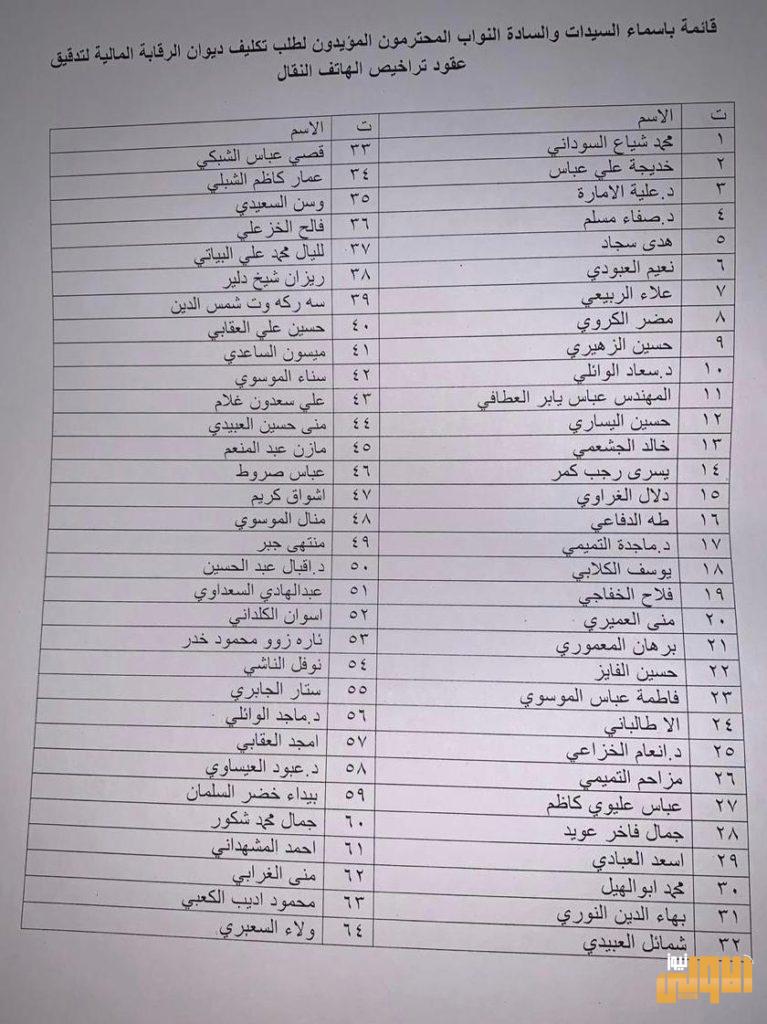 قائمة باسماء السيدات والسادة النواب المحترمون المؤيدون لطلب تكليف ديوان الرقابة المالية لتدقيق
عقود تراخيص الهاتف النقال
ت الاسم ت الاسم
١ محمد شياع السوداني ٣٣ قصي عباس الشبكي
٢ خديجة علي عباس ٣٤ عمار كاظم الشبلي
٣ د.علية الامارة ٣٥ وسن السعيدي
٤ د.صفاء مسلم ٣٦ فالح الخزعلي
٥ هدى سجاد ٣٧ لليال محمد علي البياتي
٦ نعيم العبودي ٣٨ ريزان شيخ دلير
٧ علاء الربيعي ٣٩ سه ركه وت شمس الدين
٨ مضر الكروي ٤٠ حسين علي العقابي
٩ حسين الزهيري ٤١ ميسون الساعدي
١٠ د.سعاد الوائلي ٤٢ سناء الموسوي
١١ المهندس عباس يابر العطافي ٤٣ علي سعدون غلام
١٢ حسين اليساري ٤٤ منى حسين العبيدي
١٣ خالد الجشعمي ٤٥ مازن عبد المنعم
١٤ يسرى رجب كمر ٤٦ عباس صروط
١٥ دلال الغراوي ٤٧ اشواق كريم
١٦ طه الدفاعي ٤٨ منال الموسوي
١٧ د.ماجدة التميمي ٤٩ منتهى جبر
١٨ يوسف الكلابي ٥٠ د.اقبال عبد الحسين
١٩ فلاح الخفاجي ٥١ عبدالهادي السعداوي
٢٠ منى العميري ٥٢ اسوان الكلداني
٢١ برهان المعموري ٥٣ ئاره زوو محمود خدر
٢٢ حسين الفايز ٥٤ نوفل الناشي
٢٣ فاطمة عباس الموسوي ٥٥ ستار الجابري
٢٤ الا طالباني ٥٦ د.ماجد الوائلي
٢٥ د.انعام الخزاعي ٥٧ امجد العقابي
٢٦ مزاحم التميمي ٥٨ د.عبود العيساوي
٢٧ عباس عليوي كاظم ٥٩ بيداء خضر السلمان
٢٨ جمال فاخر عويد ٦٠ جمال محمد شكور
٢٩ اسعد العبادي ٦١ احمد المشهداني
٣٠ محمد ابوالهيل ٦٢ منى الغرابي
٣١ بهاء الدين النوري ٦٣ محمود اديب الكعبي
٣٢ شمائل العبيدي ٦٤ ولاء السعبري
الاولى نيوز